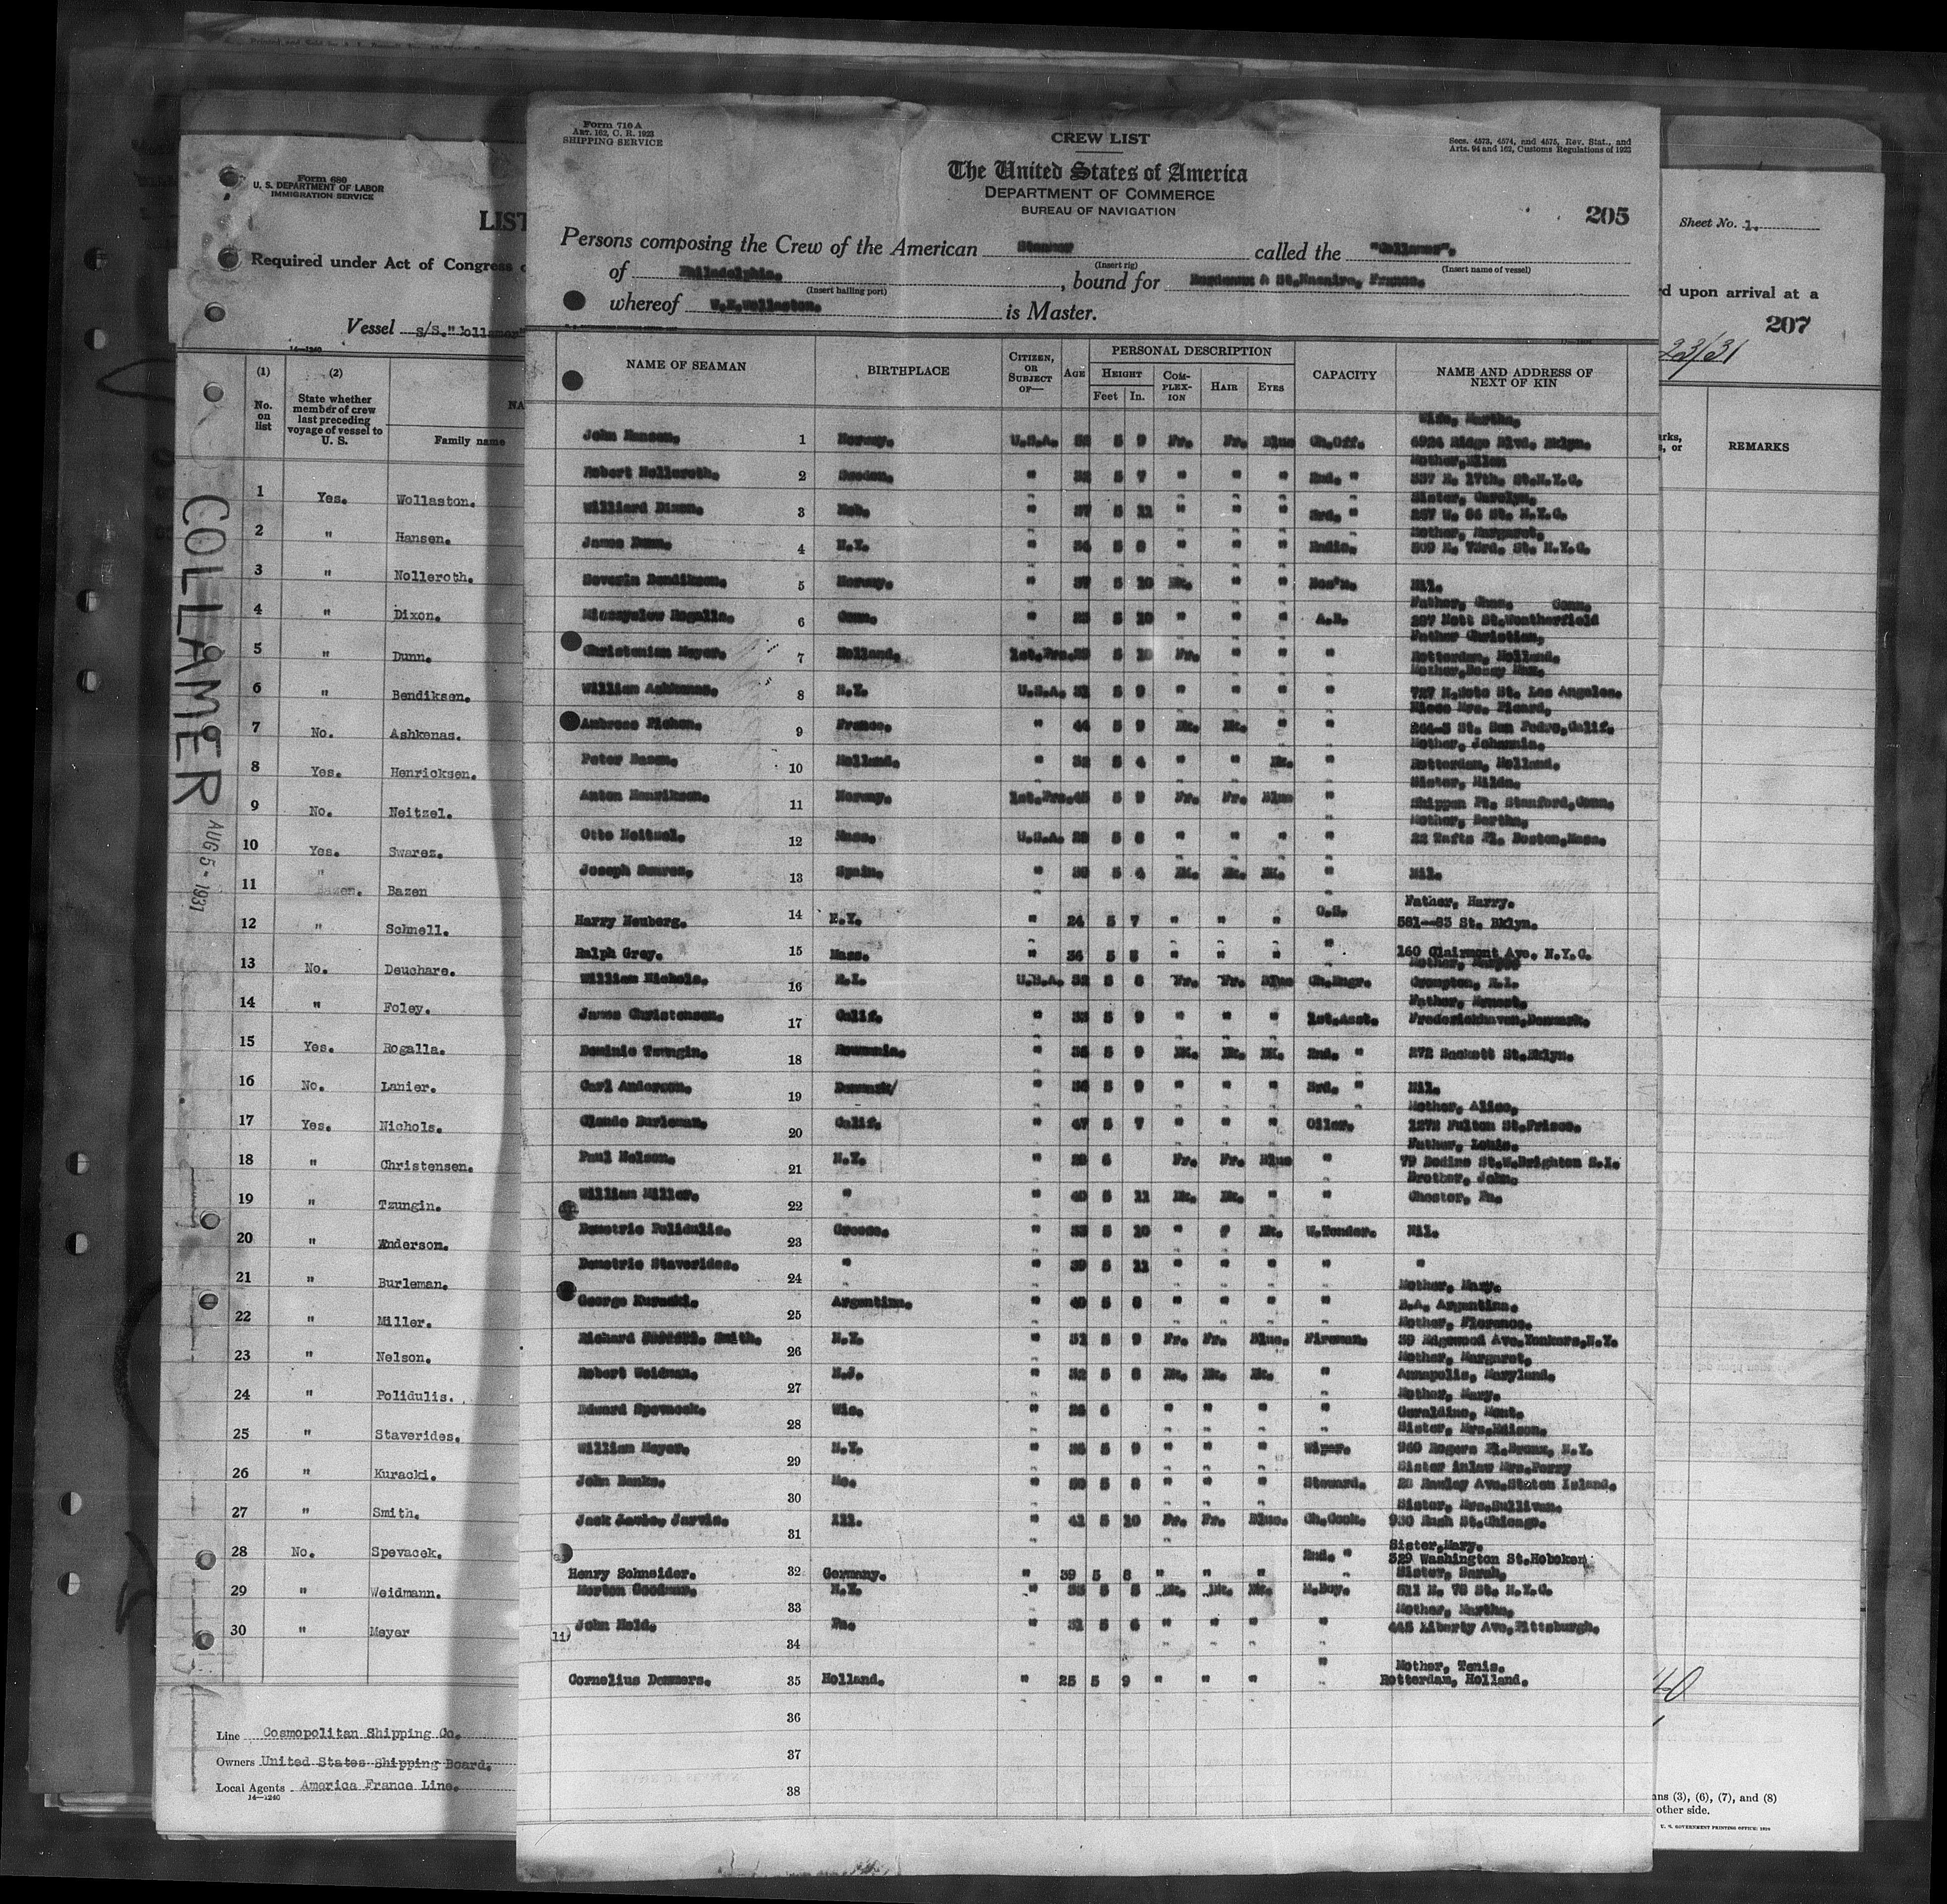 Form 680
U. S. DEPARTMENT OF LABOR
IMMIGRATION SERVICE
LIST
Required under Act of Congress
Vessel S/S. "Collamer"
14—1240
(1) (2)
No. on list
State whether member of crew last preceding voyage of vessel to U. S.
NA
Family name
1 Yes. Wollaston.
2 " Hansen.
3 " Nolleroth.
4 " Dixon.
5 " Dunn.
6 " Bendiksen.
7 No. Ashkenas.
8 Yes. Henricksen.
9 No. Neitzel.
10 Yes. Swarez.
11 " Bazen
12 " Schnell.
13 No. Deuchare.
14 " Foley.
15 Yes. Rogalla.
16 No. Lanier.
17 Yes. Nichols.
18 " Christensen.
19 " Tzungin.
20 " Anderson.
21 " Burleman.
22 " Miller.
23 " Nelson.
24 " Polidulis.
25 " Staverides.
26 " Kuracki.
27 " Smith.
28 No. Spevacek.
29 " Weidmann.
30 " Meyer
Line Cosmopolitan Shipping Co.
Owners United States Shipping Board.
Local Agents America France Line.
14—1240
COLLAMER
AUG 5 - 1931
Form 710 A
ART. 162, C. R. 1923
SHIPPING SERVICE
CREW LIST
Secs. 4573, 4574, and 4575, Rev. Stat., and
Arts. 94 and 162, Customs Regulations of 1923
The United States of America
DEPARTMENT OF COMMERCE
BUREAU OF NAVIGATION
205
Persons composing the Crew of the American Steamer called the "Collamer".
(Insert rig) (Insert name of vessel)
of Philadelphia. , bound for Bordeaux & St.Nazaire, France.
(Insert hailing port)
whereof W.E.Wollaston. is Master.
NAME OF SEAMAN BIRTHPLACE CITIZEN, OR SUBJECT OF— AGE PERSONAL DESCRIPTION CAPACITY NAME AND ADDRESS OF NEXT OF KIN
HEIGHT COMPLEXION HAIR EYES
Feet In.
Wife, Martha.
John Hansen. 1 Norway. U.S.A. 5 9 Fr. Fr. Blue Ch.Off. 6924 Ridge Blvd. Bklyn.
Mother, Ellen
Robert Nolleroth. 2 Sweden. " 5 7 " " " 2nd. " 337 E. 17th. St.N.Y.C.
Sister, Carolyn.
Williard Dixon. 3 " 5 11 " " " 3rd. " 257 W. St. N.Y.C.
Mother, Margaret.
James Dunn. 4 N.Y. " 5 8 " " " Radio. 509 E. St. N.Y.C.
Severin Bendiksen. 5 Norway. " 5 10 Dk. " " Bos'n. Nil.
Father, Chas. Conn.
Rogalla. 6 Conn. " 5 10 " " " A.B. 297 Nott St.Weatherfield
Father Christian,
Christenian Meyer. 7 Holland. 1st.Prs. 5 10 Fr. " " " Rotterdam, Holland.
William Ashkenas. 8 N.Y. U.S.A. 5 9 " " " " 727 N.Soto St. Los Angeles.
Niece Mrs. Picard,
Ambrose 9 France. " 44 5 9 Dk. Dk. " " St. San Pedro,Calif.
Mother, Johannia.
Peter Bazen. 10 Holland. " 5 4 " " Dk. " Rotterdam, Holland.
Sister, Hilda.
Anton Henriksen. 11 Norway. 1st.Prs. 5 9 Fr. Fr. Blue " Shippan Pt. Stamford,Conn.
Mother, Bertha,
Otto Neitzel. 12 Mass. U.S.A. 5 8 " " " " 22 Tufts Pl. Boston,Mass.
Joseph Swarez. 13 Spain. " 5 4 Dk. Dk. Dk. " Nil.
Father, Harry.
Harry Neuberg. 14 N.Y. " 24 5 7 " " " O.S. 581--83 St. Bklyn.
Ralph Grey. 15 Mass. " 36 5 8 " " " " 160 Clairmont Ave. N.Y.C.
William Nichols. 16 R.I. U.S.A. 5 8 Fr. Fr. Blue Ch.Engr. Crompton, R.I.
Father, Ernest.
James Christensen. 17 Calif. " 5 9 " " " 1st.Asst. Frederickhaven,Denmark.
Dominic Tzungin. 18 Roumania. " 5 9 Dk. Dk. Dk. 2nd. " 272 Sackett St.Bklyn.
Carl Anderson. 19 Denmark/ " 5 9 " " " 3rd. " Nil.
Mother, Alice,
Claude Burleman. 20 Calif. " 47 5 7 " " " Oiler. 1272 Fulton St.Frisco.
Father, Louis.
Paul Nelson. 21 N.Y. " 6 Fr. Fr. Blue " 79 Bodine St.W.Brighton S.I.
Brother, John.
William Miller. 22 " " 40 5 11 Dk. Dk. " " Chester, Pa.
Demetric Polidulis. 23 Greece. " 5 10 " " Dk. W.Tender. Nil.
Demetric Staverides. 24 " " 39 5 11 " " " " "
Mother, Mary.
George Kuracki. 25 Argentina. " 40 5 8 " " " " B.A. Argentina.
Mother, Florence.
Richard Smith. 26 N.Y. " 5 9 Fr. Fr. Blue. Fireman. 39 Edgewood Ave.Yonkers,N.Y.
Mother, Margaret.
Robert Weidman. 27 N.J. " 5 8 Dk. Dk. Dk. " Annapolis, Maryland.
Mother, Mary.
Edward Spevacek. 28 Wis. " 6 " " " " Geraldine, Mont.
Sister, Mrs.Edison.
William Meyer. 29 N.Y. " 5 9 " " " Wiper. 960 Rogers Pl.Bronx, N.Y.
Sister inlaw Mrs.Perry
John Banks. 30 Mo. " 5 8 " " " Steward. Ave.Staten Island.
Sister, Mrs.Sullivan.
Jack Jarvis. 31 Ill. " 41 5 10 Fr. Fr. Blue. Ch.Cook. 930 Rush St.Chicago.
Sister,Mary.
2nd. " 329 Washington St.Hoboken
Henry Schneider. 32 Germany. " 39 5 8 " " "
Sister, Sarah,
Morton Goodman. 33 N.Y. " 5 5 Dk. Dk. Dk. M.Boy. 511 E. 78 St. N.Y.C.
Mother, Martha.
John Held. 34 Pa. " 5 6 " " " " 445 Liberty Ave,Pittsburgh.
Mother, Tenis.
Cornelius Demmers. 35 Holland. " 25 5 9 " " " " Rotterdam, Holland.
36
37
38
Sheet No. 1.
rd upon arrival at a
207
23/31
rks,
s, or
REMARKS
40
ns (3), (6), (7), and (8)
other side.
U. S. GOVERNMENT PRINTING OFFICE: 1929